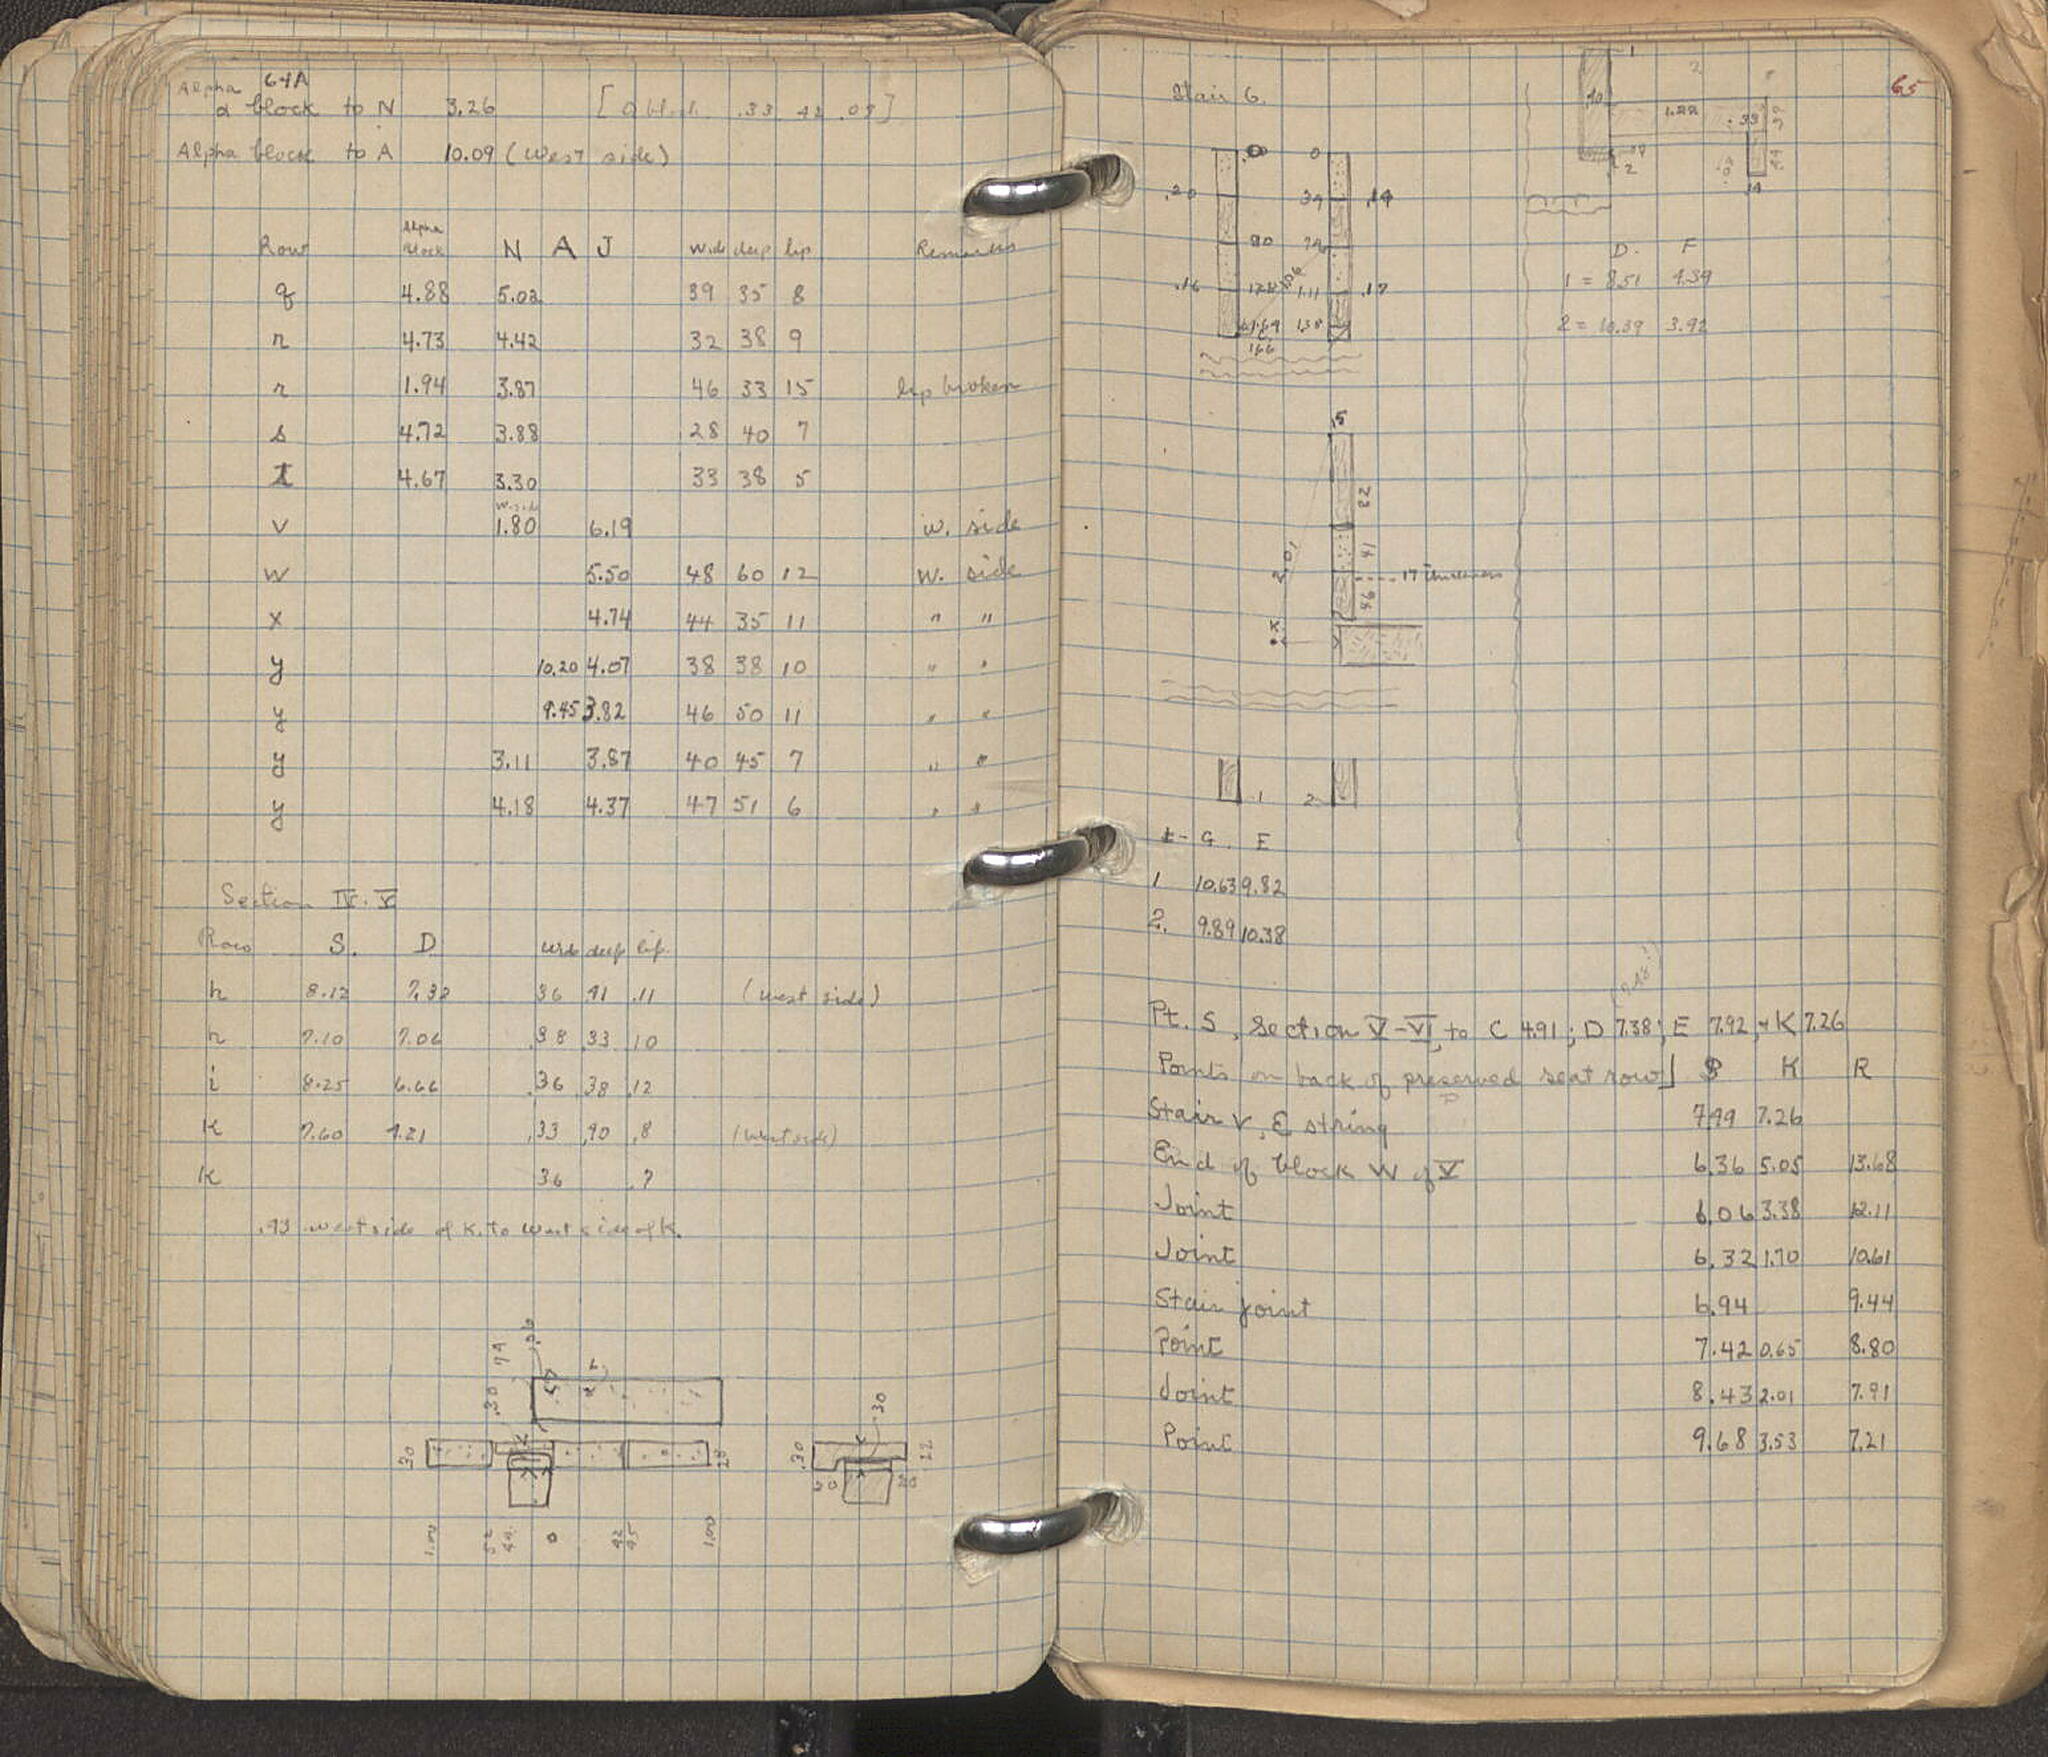 64A
Alpha
α block to N 3.26
Alpha block to A 10.09 (West side)
Row Alpha Block N A J Wide deep lip Remarks
q 4.88 5.02 39 35 8
r 4.73 4.42 32 38 9
r 1.94 3.87 46 33 15 lip broken
s 4.72 3.88 28 40 7
t 4.67 3.30 33 38 5
W. side
v 1.80 6.19 w. side
w 5.50 48 60 12 w. side
x 4.74 44 35 11 " "
y 10.20 4.07 38 38 10 " "
y 9.45 3.82 46 50 11 " "
y 3.11 3.87 40 45 7 " "
y 4.18 4.37 47 51 6 " "
Section IV-V
Row S. D wide deep lip
h 8.12 7.32 36 41 .11 (west side)
h 7.10 7.06 .38 .33 10
i 8.25 6.66 .36 .38 .12
K 7.60 .33 .40 .8 (west side)
K 36 .7
.93 west side of K. to west side of K.
.30
.30
.30
30
20
20
1.00
0
1.00
65
Stair 6.
0
.20 39 .19
80
.16 1.11 .17
138
166
1
2
1.22
.33
D. F
1 = 8.51 4.39
2 = 10.39 3.92
.5
23
2.01
17 thickness
K
1 2
t- G. E
1 10.63 9.82
2. 9.89 10.38
Pt. S, Section V-VI, to C 4.91; D 7.38; E 7.92, + K 7.26
Points on back of preserved seat row] S K R
Stair V, E string 7.99 7.26
End of block W of V 6.36 5.05 13.68
Joint 6.06 3.38 12.11
Joint 6.32 1.70 10.61
Stair joint 6.94 9.44
Point 7.42 0.65 8.80
Joint 8.43 2.01 7.91
Point 9.68 3.53 7.21